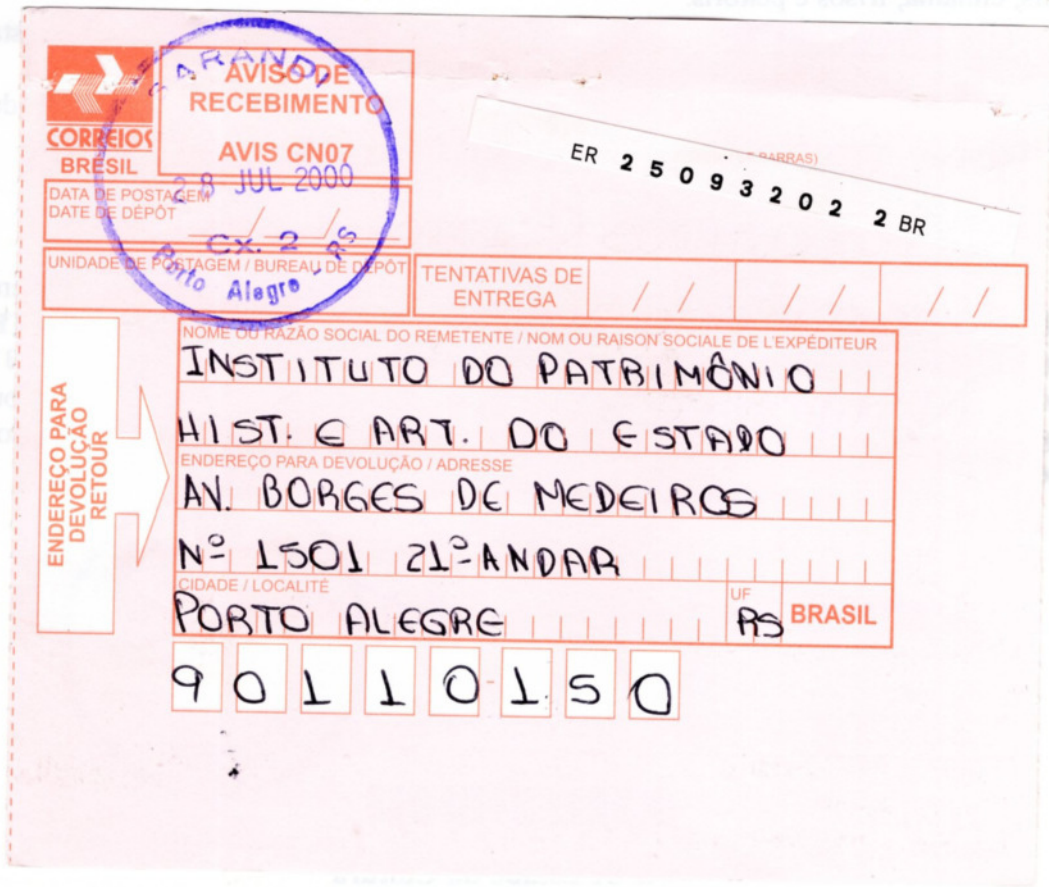 CORREIOS
BRÉSIL
AVISO DE
RECEBIMENTO
AVIS CN07
SARANDI
28 JUL 2000
Cx. 2
Porto Alegre - RS
DATA DE POSTAGEM
DATE DE DÉPÔT
UNIDADE DE POSTAGEM / BUREAU DE DÉPÔT
BARRAS)
ER 25093202 2 BR
TENTATIVAS DE
ENTREGA
/ / / / / /
ENDEREÇO PARA
DEVOLUÇÃO
RETOUR
NOME OU RAZÃO SOCIAL DO REMETENTE / NOM OU RAISON SOCIALE DE L'EXPÉDITEUR
INSTITUTO DO PATRIMÔNIO
HIST. E ART. DO ESTADO
ENDEREÇO PARA DEVOLUÇÃO / ADRESSE
AV. BORGES DE MEDEIROS
Nº 1501 21º ANDAR
CIDADE / LOCALITÉ
PORTO ALEGRE
UF
RS
BRASIL
90110150